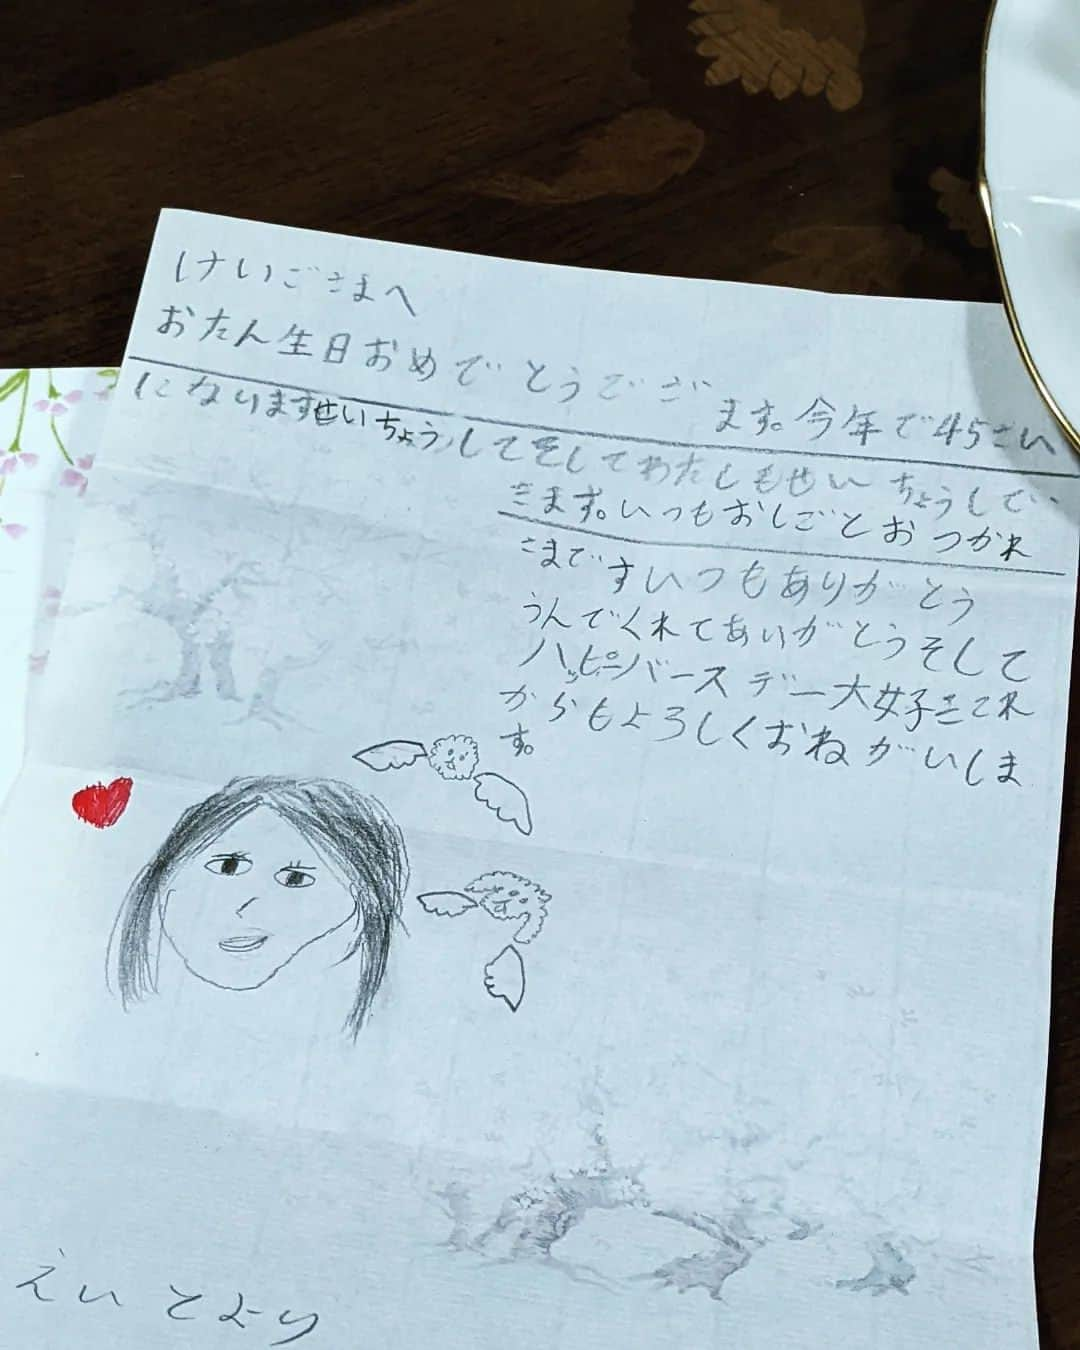 けいごさまへ
おたん生日おめでとうでござ
ます。今年で45さい
になりますせいちょうしてそしてわたしもせいちょうしてい
きます。いつもおしごとおつかれ
さまですいつもありがとう
うんでくれてあいがとうそして
ハッピーバースデー大女子きこれ
からもよろしくおねがいしま
す。
えいとより